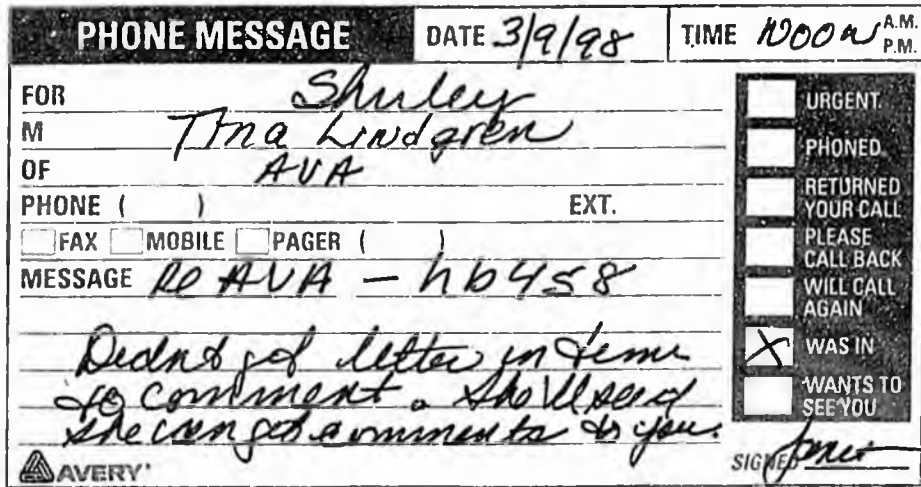 PHONE MESSAGE DATE 3/9/98 TIME NOON A.M. P.M.
FOR Shirley
M Tina Lindgren
OF AVA
PHONE ( ) EXT.
FAX MOBILE PAGER ( )
MESSAGE Re AVA - hb458
Didn't get letter in time
to comment. She'll see if
she can get comments to you.
URGENT
PHONED
RETURNED YOUR CALL
PLEASE CALL BACK
WILL CALL AGAIN
X WAS IN
WANTS TO SEE YOU
AVERY
SIGNED Janet